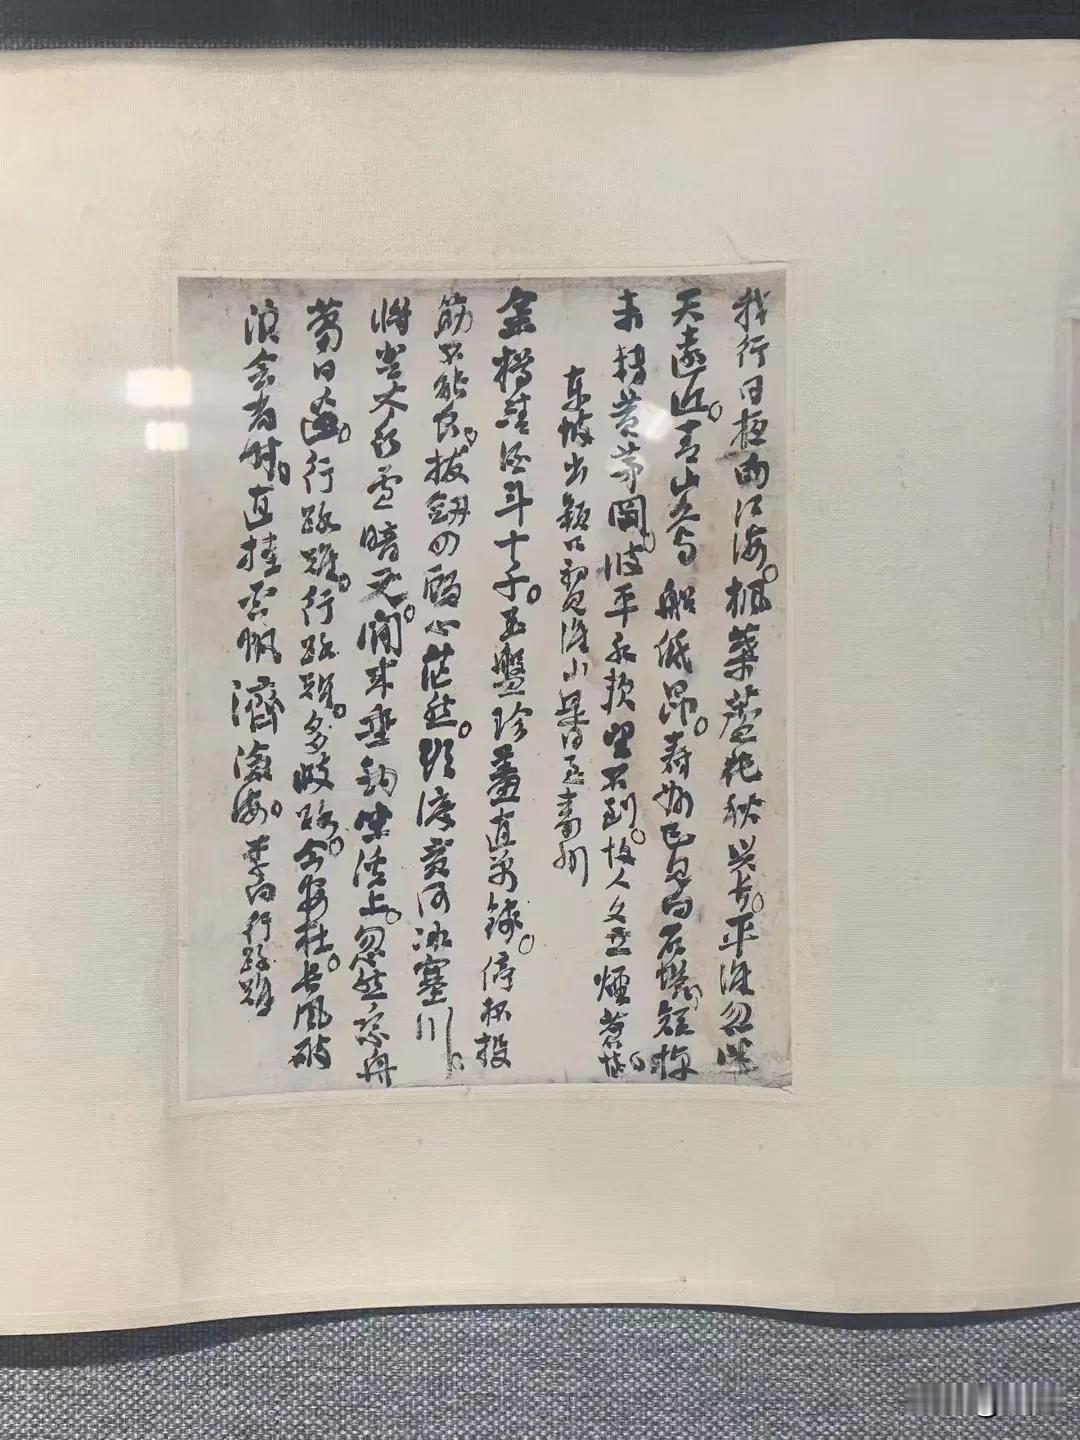 我行日夜向江海。楓葉蘆花秋興長。平淮忽迷
天遠近。青山久与船低昂。壽州已見白石塔。短棹
未轉黃茅岡。波平風軟望不到。故人久立煙蒼茫。
東坡出穎口初見淮山是日至壽州
金樽清酒斗十千。玉盤珍羞直萬錢。停杯投
筯不能食。拔劒四顧心茫然。欲渡黃河冰塞川。
將登太行雪暗天。閒來垂釣坐溪上。忽然乘舟
夢日邊。行路難。行路難。多歧路。今安在。長風破
浪會有時。直挂雲帆濟滄海。李白行路難